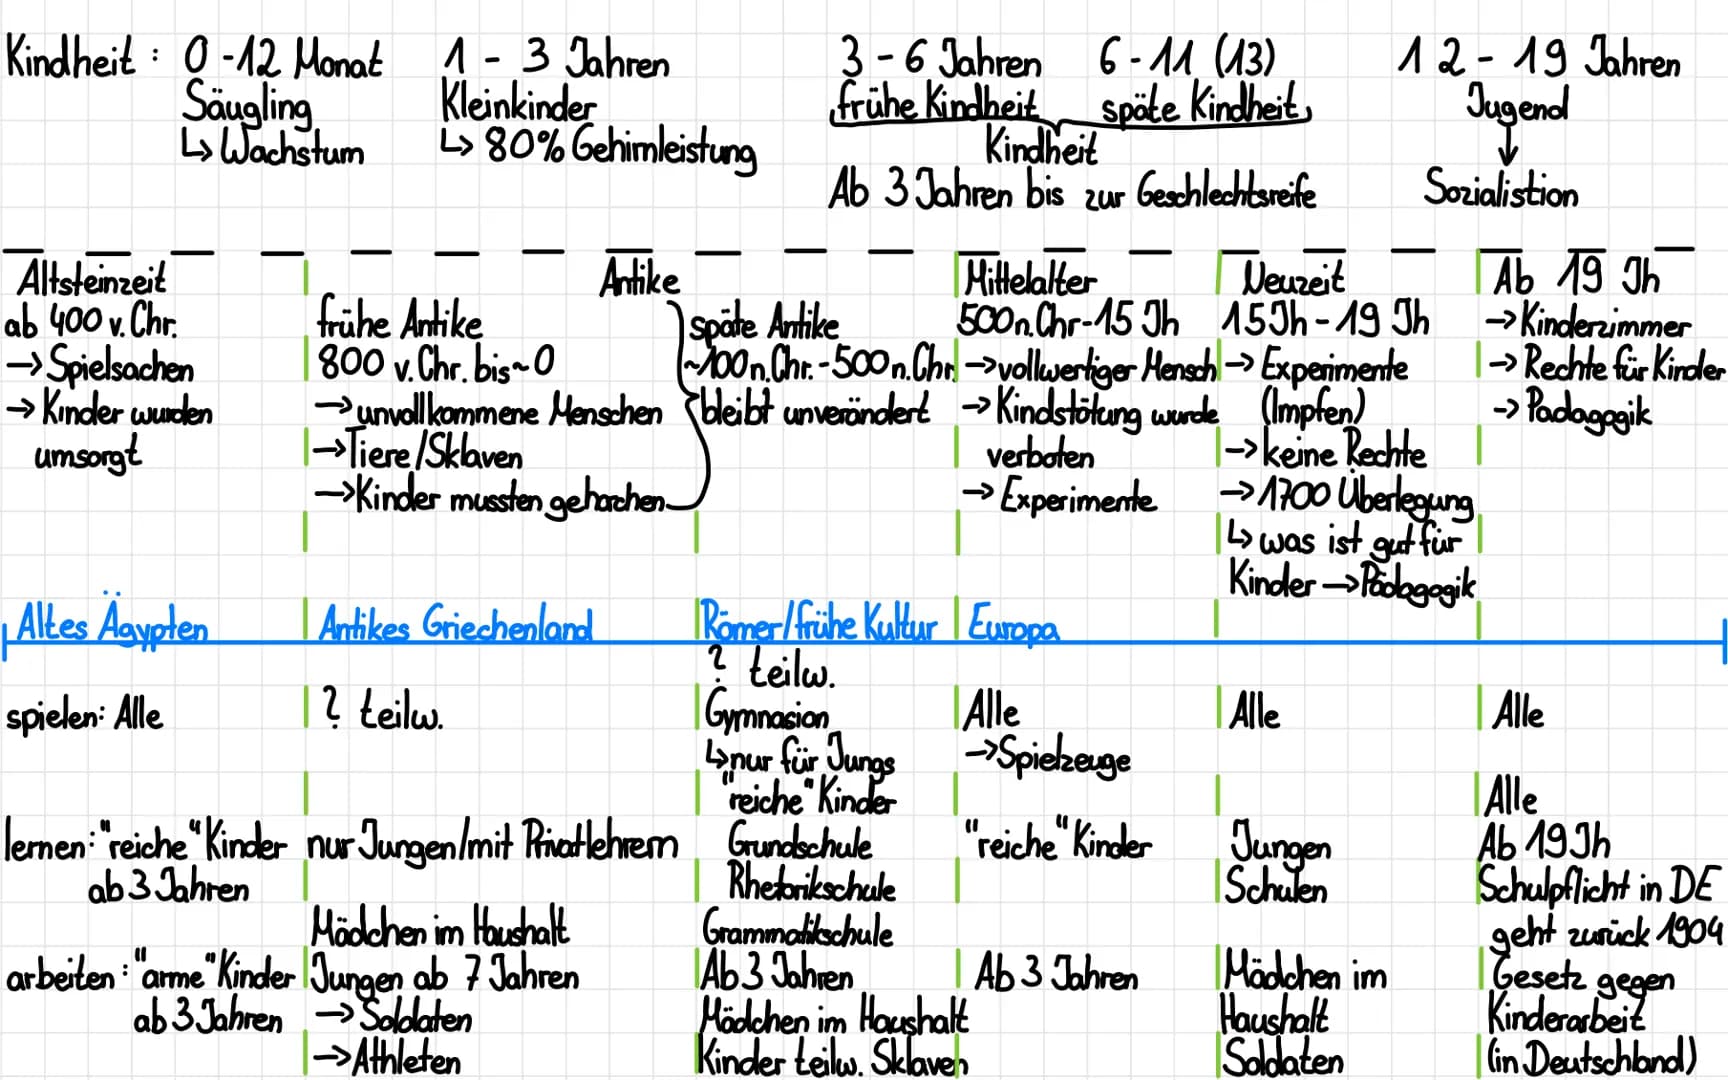 Kindheit : 0 - 12 Monat
Säugling
↳ Wachstum
1 - 3 Jahren
Kleinkinder
↳ 80% Gehirnleistung
3 - 6 Jahren
frühe Kindheit
6 - 11 (13)
späte Kindheit
Kindheit
Ab 3 Jahren bis zur Geschlechtsreife
12 - 19 Jahren
Jugend
↓
Sozialistion
Altsteinzeit
ab 400 v. Chr.
→ Spielsachen
→ Kinder wurden
umsorgt
Antike
frühe Antike
800 v. Chr. bis ~ 0
→ unvollkommene Menschen
→ Tiere/Sklaven
→ Kinder mussten gehorchen
späte Antike
~100 n. Chr. - 500 n. Chr.
bleibt unverändert
Mittelalter
500 n. Chr - 15 Jh
→ vollwertiger Mensch
→ Kindstötung wurde
verboten
→ Experimente
Neuzeit
15 Jh - 19 Jh
→ Experimente
(Impfen)
→ keine Rechte
→ 1700 Überlegung
↳ was ist gut für
Kinder → Pädagogik
Ab 19 Jh
→ Kinderzimmer
→ Rechte für Kinder
→ Padagogik
Altes Ägypten
Antikes Griechenland
Römer/frühe Kultur
Europa
spielen: Alle
? teilw.
? teilw.
Gymnasion
↳ nur für Jungs
"reiche" Kinder
Alle
→ Spielzeuge
Alle
Alle
lernen: "reiche" Kinder
ab 3 Jahren
nur Jungen/mit Privatlehrern
Grundschule
Rhetorikschule
Grammatikschule
"reiche" Kinder
Jungen
Schulen
Alle
Ab 19 Jh
Schulpflicht in DE
geht zurück 1904
arbeiten: "arme" Kinder
ab 3 Jahren
Mädchen im Haushalt
Jungen ab 7 Jahren
→ Soldaten
→ Athleten
Ab 3 Jahren
Mädchen im Haushalt
Kinder teilw. Sklaven
Ab 3 Jahren
Mädchen im
Haushalt
Soldaten
Gesetz gegen
Kinderarbeit
(in Deutschland)